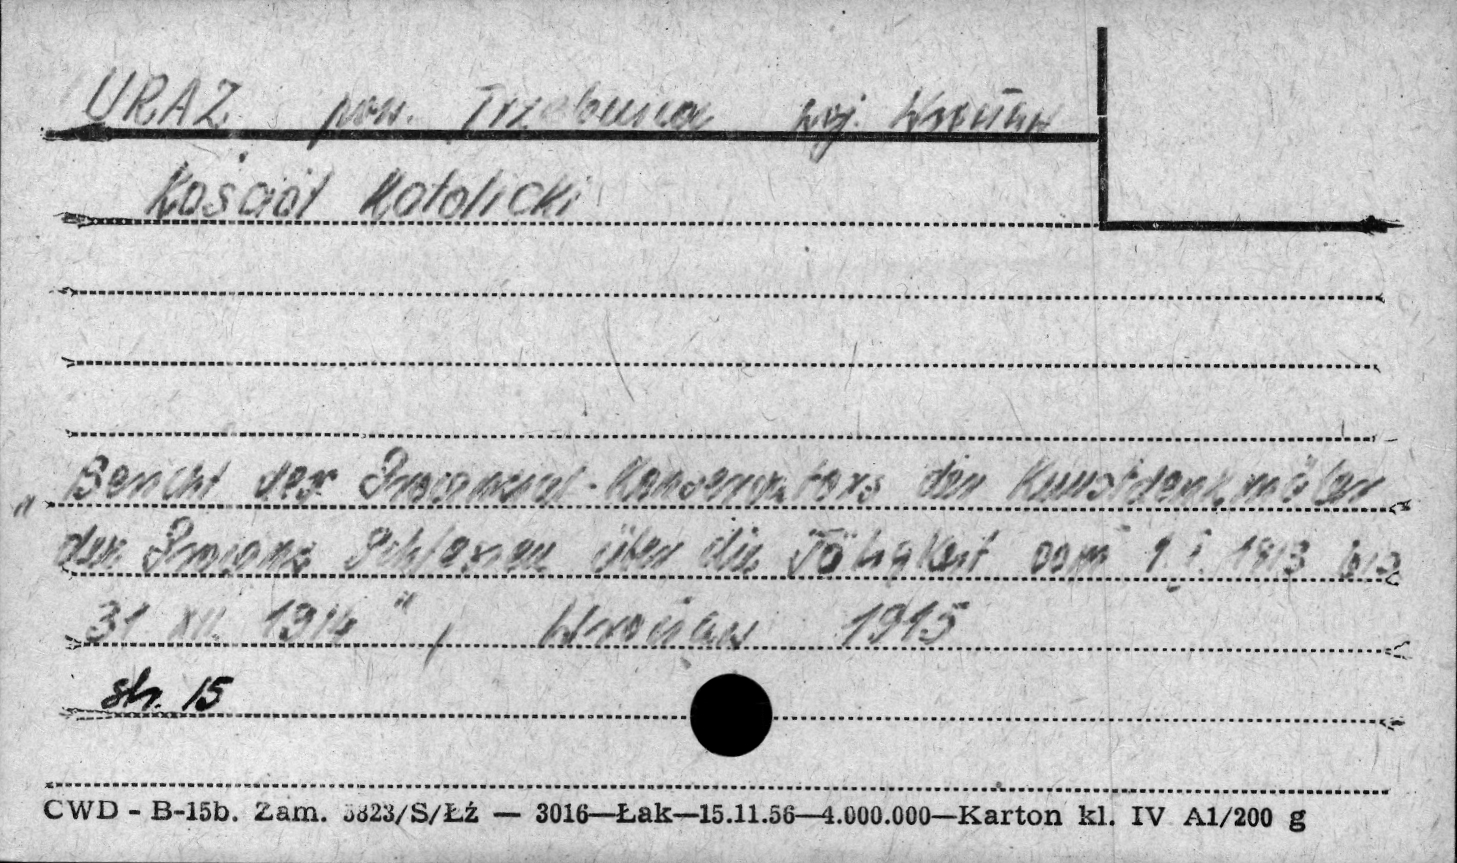 URAZ pow. Trzebnica woj. Wrocław
Kościół Katolicki
"Bericht des Provinzial-Konservators der Kunstdenkmäler
der Provinz Schlesien über die Tätigkeit vom 1.I.1913 bis
31 XII. 1914", Wrocław 1915
str. 15
CWD - B-15b. Zam. 5823/S/Łż — 3016—Łak—15.11.56—4.000.000—Karton kl. IV A1/200 g